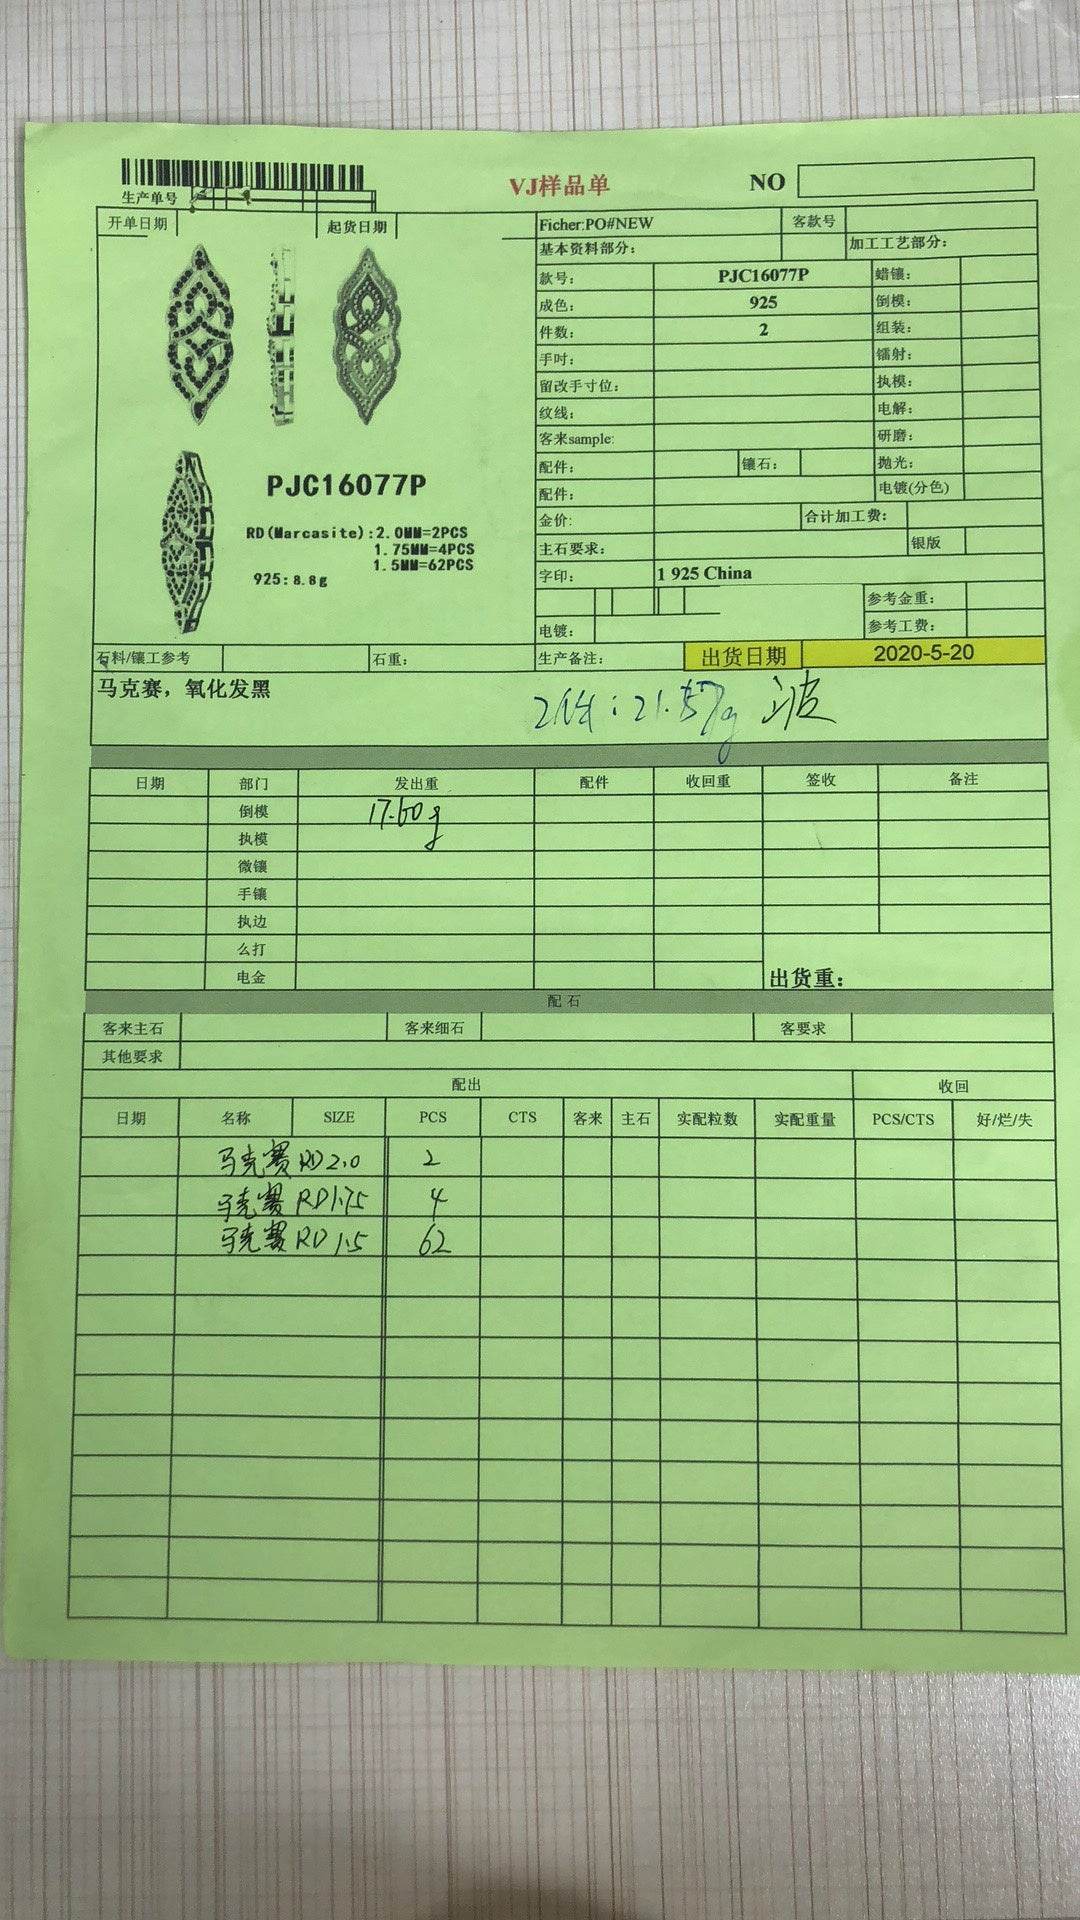 VJ样品单
NO
生产单号
开单日期 起货日期 Ficher:PO#NEW 客款号
基本资料部分: 加工工艺部分:
款号: PJC16077P 蜡镶:
成色: 925 倒模:
件数: 2 组装:
手吋: 镭射:
留改手寸位: 执模:
纹线: 电解:
客来sample: 研磨:
配件: 镶石: 抛光:
配件: 电镀(分色)
金价: 合计加工费:
主石要求: 银版
字印: 1 925 China
参考金重:
电镀: 参考工费:
PJC16077P
RD(Marcasite):2.0MM=2PCS
1.75MM=4PCS
1.5MM=62PCS
925:8.8g
石料/镶工参考 石重: 生产备注: 出货日期 2020-5-20
马克赛，氧化发黑
2件:21.57g
日期 部门 发出重 配件 收回重 签收 备注
倒模 17.60g
执模
微镶
手镶
执边
么打
电金 出货重:
配石
客来主石 客来细石 客要求
其他要求
配出 收回
日期 名称 SIZE PCS CTS 客来 主石 实配粒数 实配重量 PCS/CTS 好/烂/失
马克赛 RD2.0 2
马克赛 RD1.75 4
马克赛 RD 1.5 62